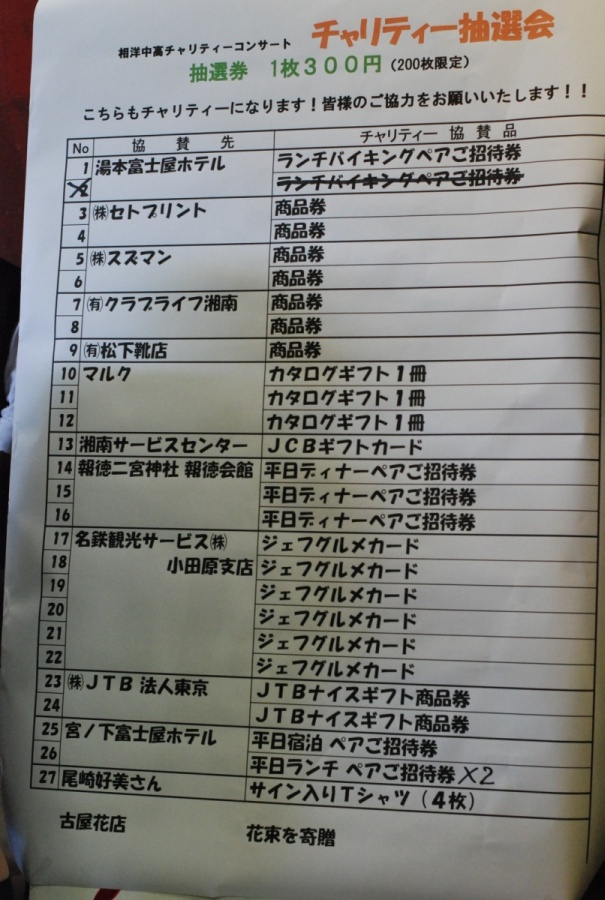 相洋中高チャリティーコンサート チャリティー抽選会
抽選券 1枚300円(200枚限定)
こちらもチャリティーになります!皆様のご協力をお願いいたします!!
No 協賛先 チャリティー協賛品
1 湯本富士屋ホテル ランチバイキングペアご招待券
2 ランチバイキングペアご招待券
3 ㈱セトプリント 商品券
4 商品券
5 ㈱スズマン 商品券
6 商品券
7 ㈲クラブライフ湘南 商品券
8 商品券
9 ㈲松下靴店 商品券
10 マルク カタログギフト1冊
11 カタログギフト1冊
12 カタログギフト1冊
13 湘南サービスセンター JCBギフトカード
14 報徳二宮神社 報徳会館 平日ディナーペアご招待券
15 平日ディナーペアご招待券
16 平日ディナーペアご招待券
17 名鉄観光サービス㈱ ジェフグルメカード
18 小田原支店 ジェフグルメカード
19 ジェフグルメカード
20 ジェフグルメカード
21 ジェフグルメカード
22 ジェフグルメカード
23 ㈱JTB 法人東京 JTBナイスギフト商品券
24 JTBナイスギフト商品券
25 宮ノ下富士屋ホテル 平日宿泊 ペアご招待券
26 平日ランチ ペアご招待券×2
27 尾崎好美さん サイン入りTシャツ(4枚)
古屋花店 花束を寄贈